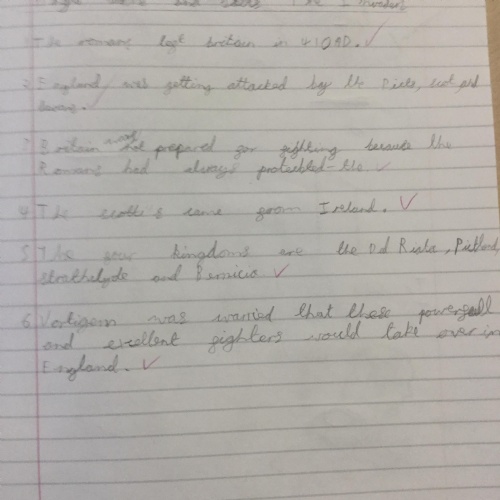 The Invaders
1. The romans left britain in 410AD.
2. England was getting attacked by the Picts, scot, and
3. Britain was not prepared for fighting because the
Romans had always protected the
4. The scotts came from Ireland.
5. The four kingdoms are the Dal Riata, Pictland,
strathclyde and Bernicia
6. Vortigern was worried that these powerfull
and excellent fighters would take over in
England.